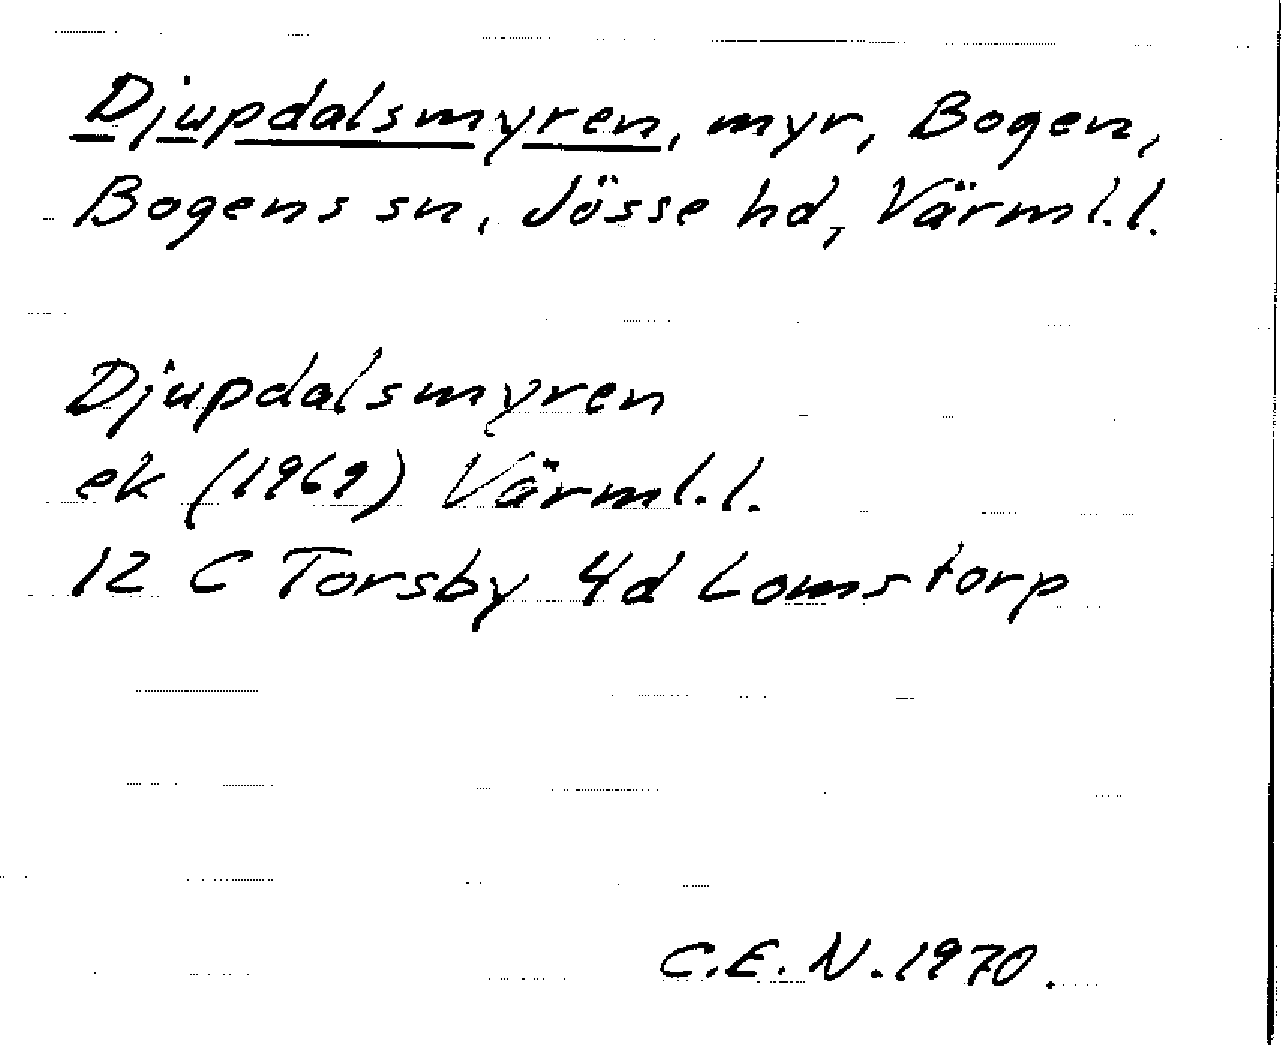 Djupdalsmyren, myr, Bogen,
Bogens sn, Jösse hd, Värml.l.
Djupdalsmyren
ek (1969) Värml.l.
12 C Torsby 4d Lomstorp
C.E.N.1970.